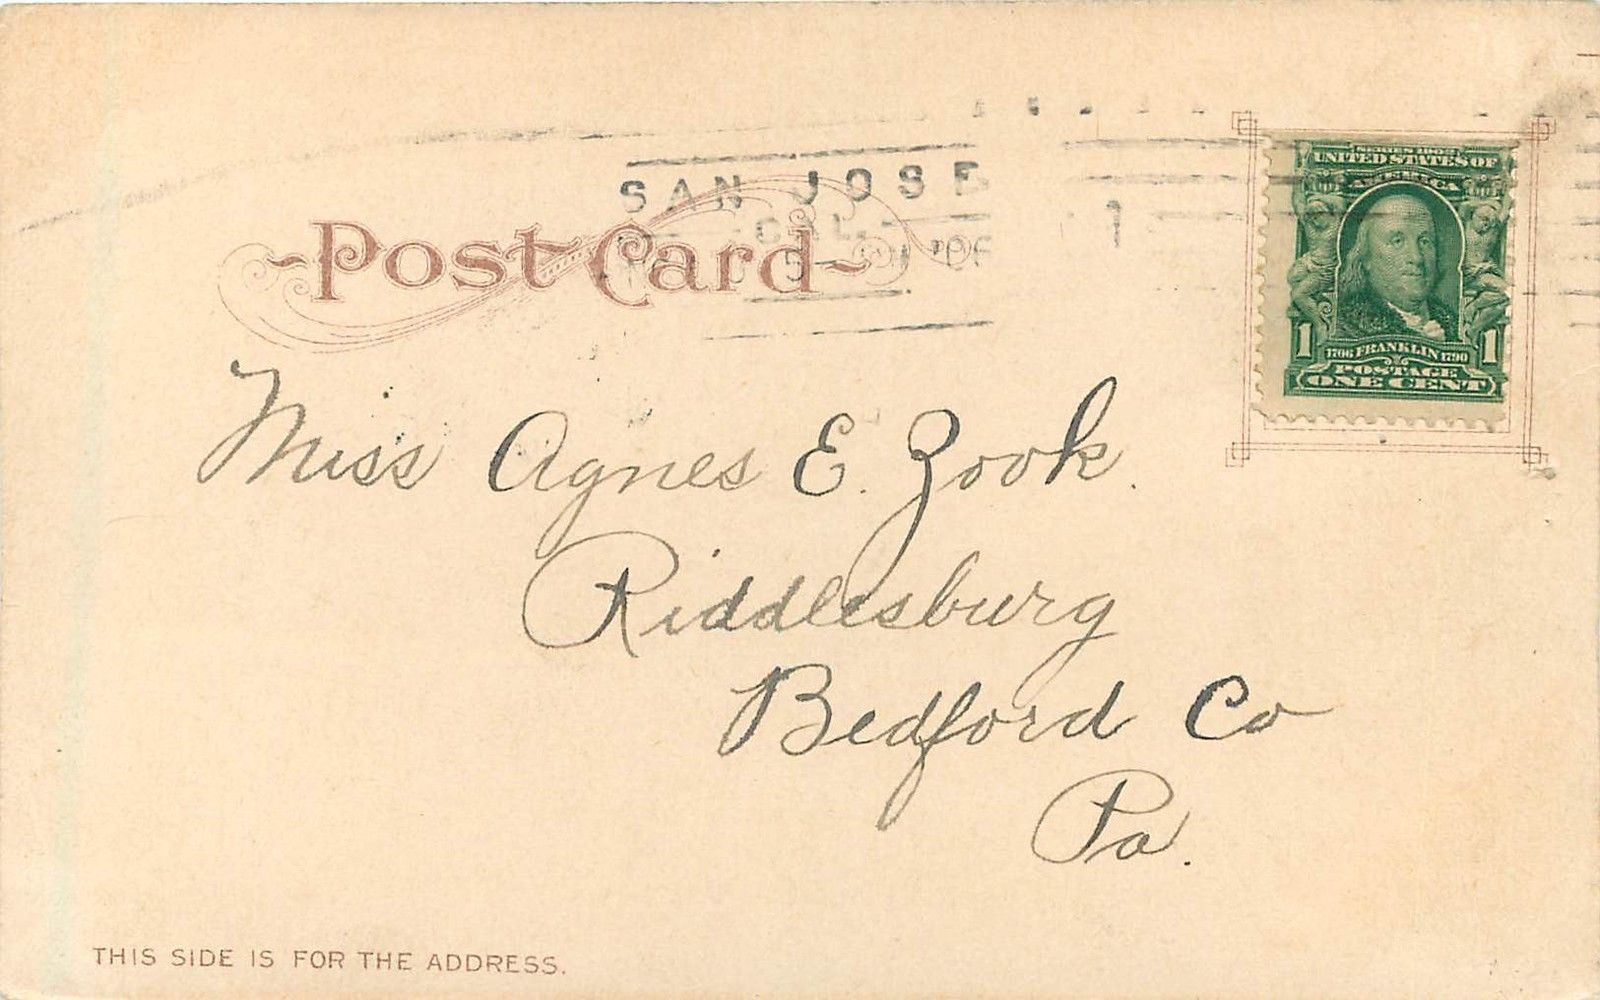 SAN JOSE
CAL.
'06
1
Post Card
SERIES 1902
UNITED STATES OF
AMERICA
1 1
1706 FRANKLIN 1790
POSTAGE
ONE CENT
Miss Agnes E. Zook.
Riddlesburg
Bedford Co
Pa.
THIS SIDE IS FOR THE ADDRESS.